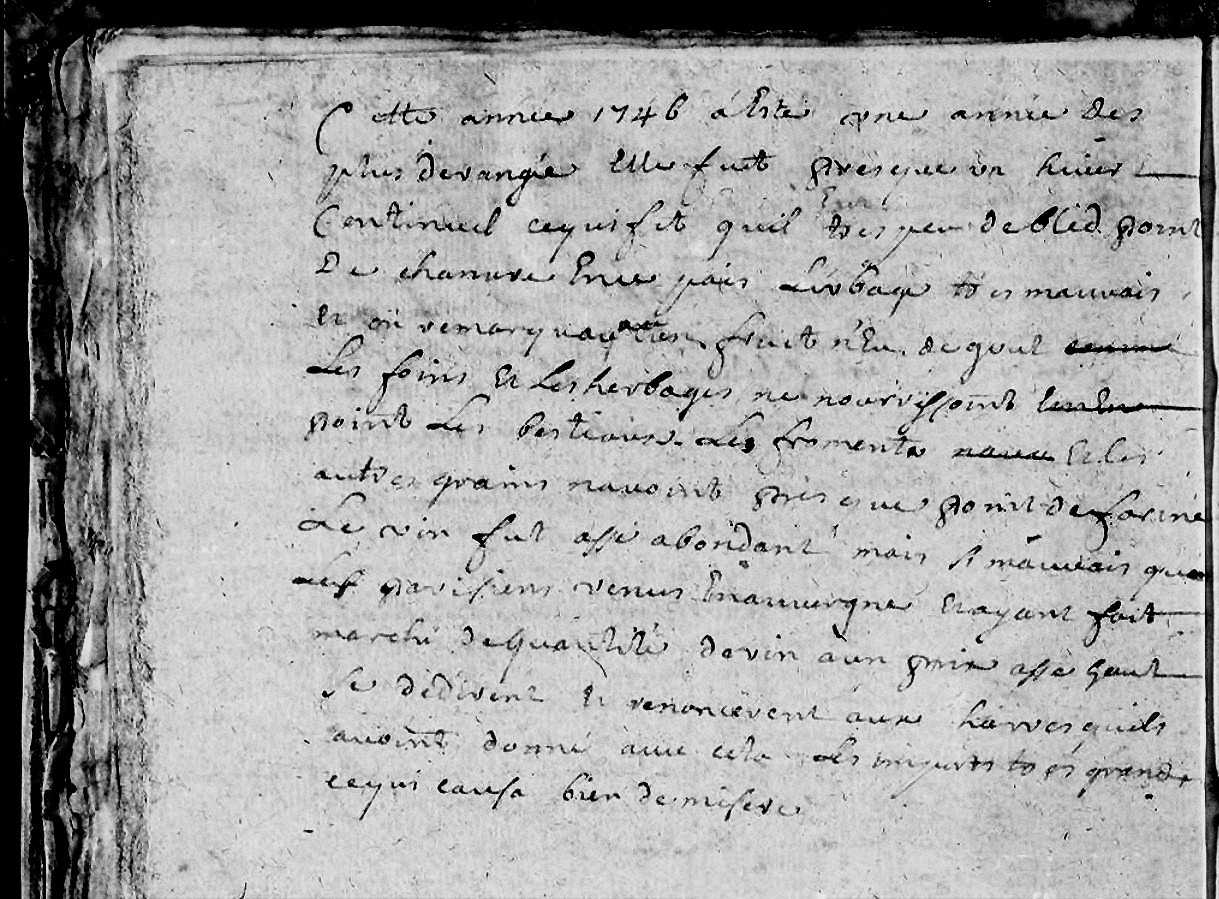 Cette année 1746 a Esté une année des
plus derangée Elle fut presque un hiuer
Continuel cequi fit quil tres peu de bled point
De chanure En ce païs Lerbage tres mauuais
Et on remarqua fruit n'Eu de gout
Les foins Et Les herbages ne nourrissoint
point Les bestiaux. Les froments Et les
autres grains nauoint presque point de farine
Le vin fut assé abondant mais si mauuais que
Les parisiens venus En auuergne Et ayant fait
marché de quantité de vin a un prix assé haut
se dedirent Et renoncerent aux harres quils
auoint donné auec cela Les impots tres grands
cequi causa bien de misere